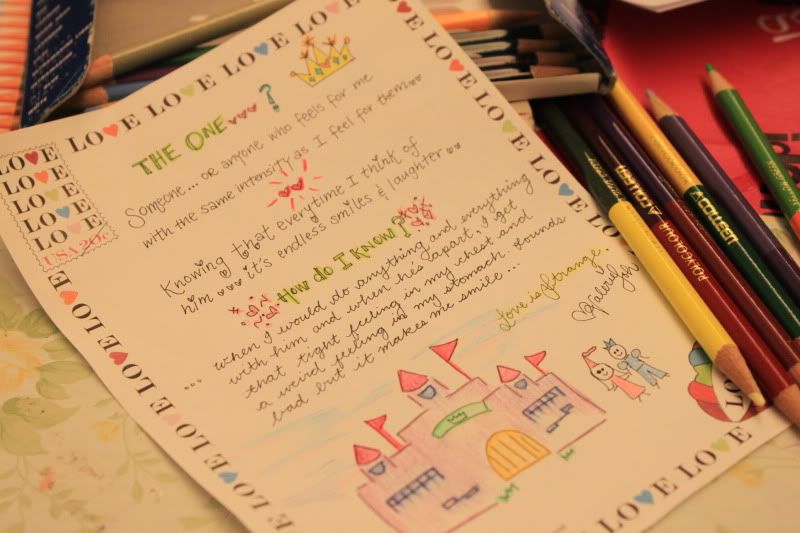 LOVE LOVE LOVE LOVE LOVE LOVE
LOVE
LOVE
LOVE
LOVE
USA 20c
THE ONE ?
Someone... or anyone who feels for me
with the same intensity as I feel for them
Knowing that everytime I think of
him ... it's endless smiles & laughter
How do I know?
... when I would do anything and everything
with him and when he's apart, I get
that tight feeling in my chest and
a weird feeling in my stomach. Sounds
bad but it makes me smile...
Love is Strange.
LOVE LOVE LOVE LOVE
LOVE LOVE LOVE
COLLEEN
POLYCOLOUR
COLLEEN